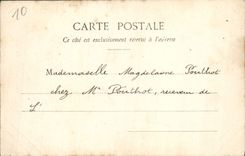 10
CARTE POSTALE
Ce côté est exclusivement réservé à l'adresse
Mademoiselle Magdeleine Pouthot
chez Mr Pouthot, receveur de
L'